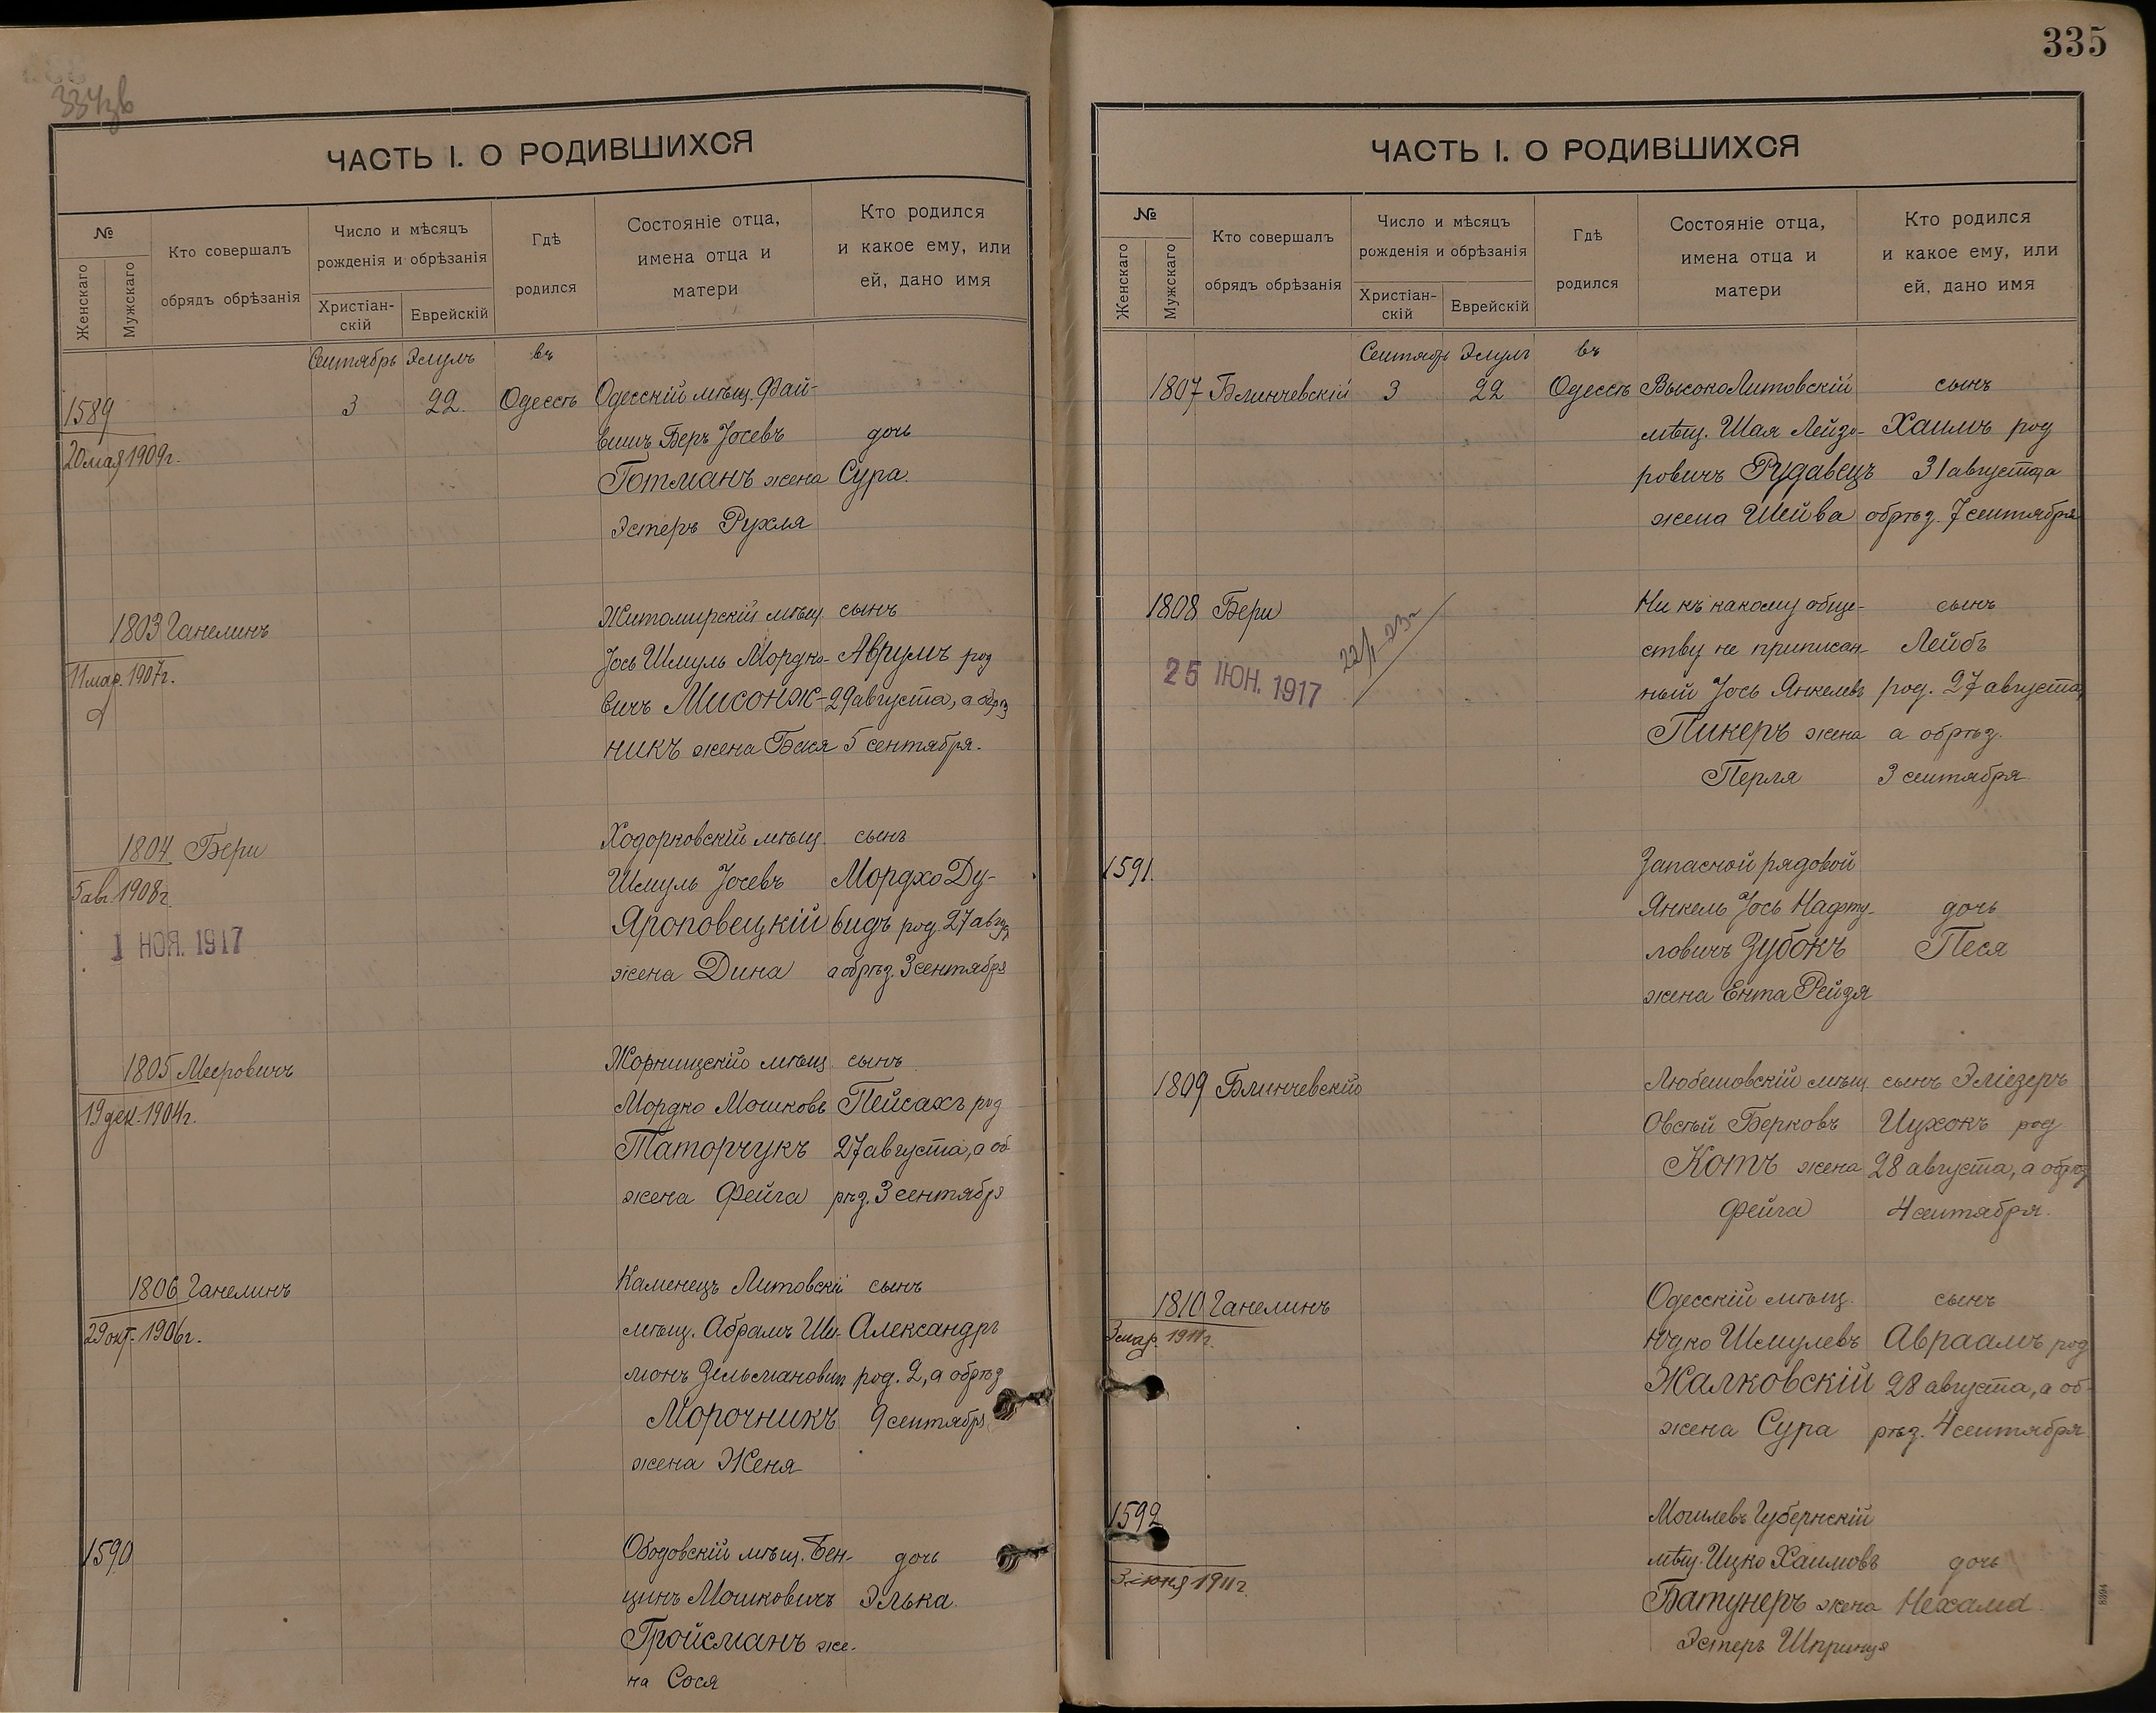 334 зв
ЧАСТЬ I. О РОДИВШИХСЯ
№
Женскаго
Мужскаго
Кто совершалъ
обрядъ обрѣзанія
Число и мѣсяцъ
рожденія и обрѣзанія
Христіан-
скій
Еврейскій
Гдѣ
родился
Состояніе отца,
имена отца и
матери
Кто родился
и какое ему, или
ей, дано имя
Сентябрь Элулъ въ
1589 3 22. Одессѣ Одесскій мѣщ. Фай-
вишъ Беръ Іосевъ дочь
20 мая 1909 г. Готманъ жена Сура.
Эстеръ Рухля
1803 Ганелинъ Житомирскій мѣщ. сынъ
11 мар. 1907 г. Іось Шмуль Мордко- Аврумъ род
вичъ Мисонж- 29 августа, а обрѣз
никъ жена Бася 5 сентября.
1804 Бери Ходорковскій мѣщ. сынъ
5 ав. 1908 г. Шмуль Іосевъ Мордхо Ду-
1 НОЯ. 1917 Яроповецкій видъ род. 27 авгус,
жена Дина а обрѣз. 3 сентября
1805 Мееровичъ Жорнищскій мѣщ. сынъ
19 дек. 1904 г. Мордко Мошковъ Пейсахъ род
Таторчукъ 27 августа, а об
жена Фейга рѣз. 3 сентября
1806 Ганелинъ Каменецъ Литовскій сынъ
29 окт. 1906 г. мѣщ. Абрамъ Ши- Александръ
монъ Зельмановичъ род. 2, а обрѣз
Морочникъ 9 сентября
жена Женя
1590 Ободовскій мѣщ. Бен- дочь
ціонъ Мошковичъ Элька.
Гройсманъ же-
на Сося
335
ЧАСТЬ I. О РОДИВШИХСЯ
№
Женскаго
Мужскаго
Кто совершалъ
обрядъ обрѣзанія
Число и мѣсяцъ
рожденія и обрѣзанія
Христіан-
скій
Еврейскій
Гдѣ
родился
Состояніе отца,
имена отца и
матери
Кто родился
и какое ему, или
ей, дано имя
Сентябрь Элулъ въ
1807 Блинчевскій 3 22 Одессѣ ВысокоЛитовскій сынъ
мѣщ. Шая Лейзо- Хаимъ род
ровичъ Рудавецъ 31 августа, а
жена Шейва обрѣз. 7 сентября
1808 Бери Ни къ какому обще- сынъ
25 ІЮН. 1917 ству не приписан- Лейбъ
ный Іось Янкелевъ род. 27 августа,
Пикеръ жена а обрѣз.
Перля 3 сентября
1591. Запасной рядовой
Янкель Іось Нафту- дочь
ловичъ Зубокъ Песя
жена Ента Рейзя
1809 Блинчевскій Любешовскій мѣщ. сынъ Эліезеръ
Овсѣй Берковъ Ицхокъ род
Котъ жена 28 августа, а обрѣз
Фейга 4 сентября.
1810 Ганелинъ Одесскій мѣщ. сынъ
3 мар. 1911 г. Юдко Шмулевъ Авраамъ род
Жалковскій 28 августа, а об-
жена Сура рѣз. 4 сентября.
1592 Могилевъ Губернскій
3 іюня 1911 г. мѣщ. Ицко Хаимовъ дочь
Батунеръ жена Нехама.
Эстеръ Шпринця